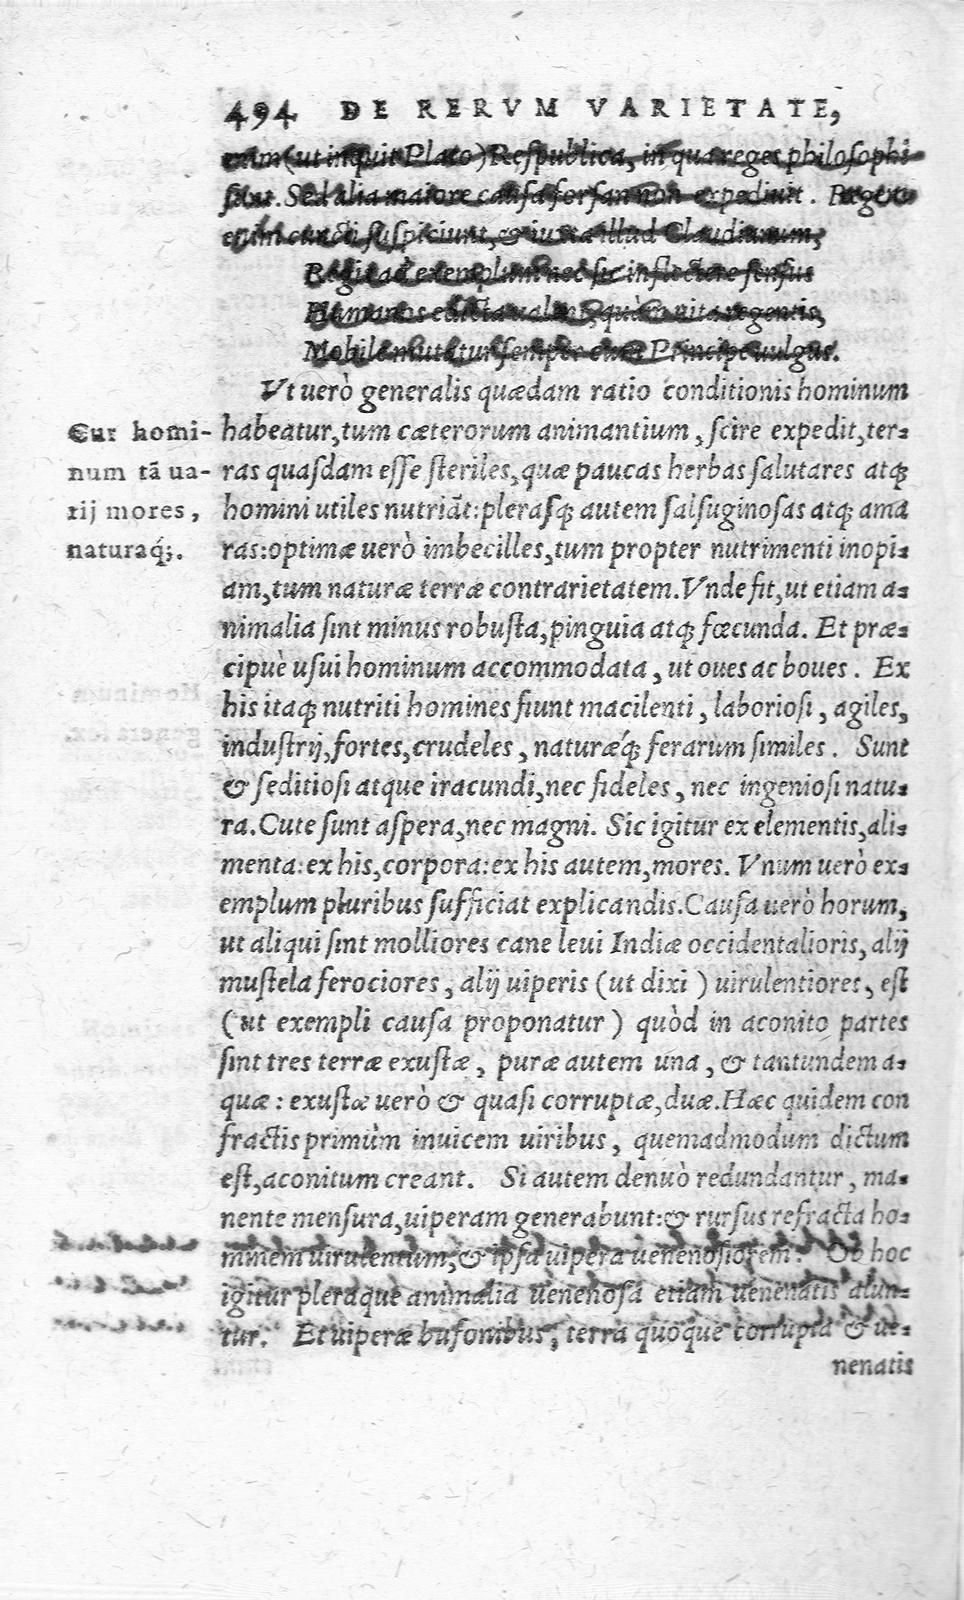 494 DE RERVM VARIETATE,
enim (ut inquit Plato) Respublica, in qua reges philosophi
sint. Sed alia maiore causa forsan non expediuit. Reges
enim cuncti suspiciunt, & iuxta illud Claudianum,
Regis ad exemplum nec sic inflectere sensus
Humanos edicta ualent, quàm uita regentis,
Mobile mutatur semper cum Principe uulgus.
Vt uerò generalis quædam ratio conditionis hominum
Cur homi-
num tā ua-
rij mores,
naturaq́;.
habeatur, tum cæterorum animantium, scire expedit, ter-
ras quasdam esse steriles, quæ paucas herbas salutares atq;
homini utiles nutriāt: plerasq; autem salsuginosas atq; ama
ras: optimæ uerò imbecilles, tum propter nutrimenti inopi-
am, tum naturæ terræ contrarietatem. Vnde fit, ut etiam a-
nimalia sint minus robusta, pinguia atq; fœcunda. Et præ-
cipuè usui hominum accommodata, ut oues ac boues. Ex
his itaq; nutriti homines fiunt macilenti, laboriosi, agiles,
industrij, fortes, crudeles, naturæq́; ferarùm similes. Sunt
& seditiosi atque iracundi, nec fideles, nec ingeniosi natu-
ra. Cute sunt aspera, nec magni. Sic igitur ex elementis, ali-
menta: ex his, corpora: ex his autem, mores. Vnum uerò ex-
emplum pluribus sufficiat explicandis. Causa uerò horum,
ut aliqui sint molliores cane leui Indiæ occidentalioris, alij
mustela ferociores, alij uiperis (ut dixi) uirulentiores, est
(ut exempli causa proponatur) quòd in aconito partes
sint tres terræ exustæ, puræ autem una, & tantundem a-
quæ: exustæ uerò & quasi corruptæ, duæ. Hæc quidem con
fractis primùm inuicem uiribus, quemadmodum dictum
est, aconitum creant. Si autem denuò redundantur, ma-
nente mensura, uiperam generabunt: & rursus refracta ho-
minem uirulentium, & ipsa uipera uenenosiorem. Ob hoc
igitur pleraque animalia uenenosa etiam uenenatis alun-
tur. Et uiperæ bufonibus, terra quoque corrupta & ue-
nenatis